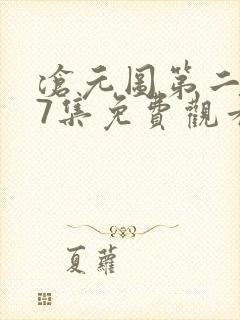 滄元图第二
7集免費觀看
夏蘿